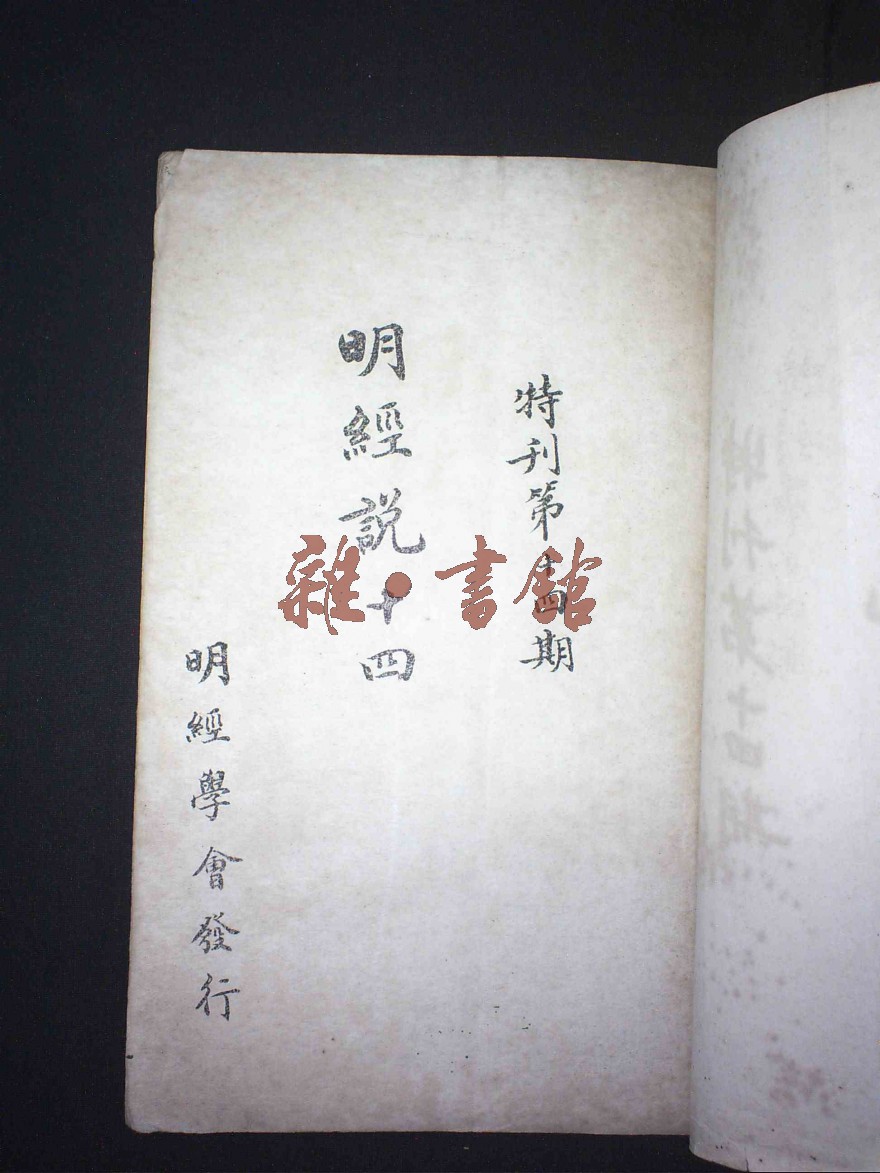 特刊第十四期
明經說十四
明經學會發行
雜·書館